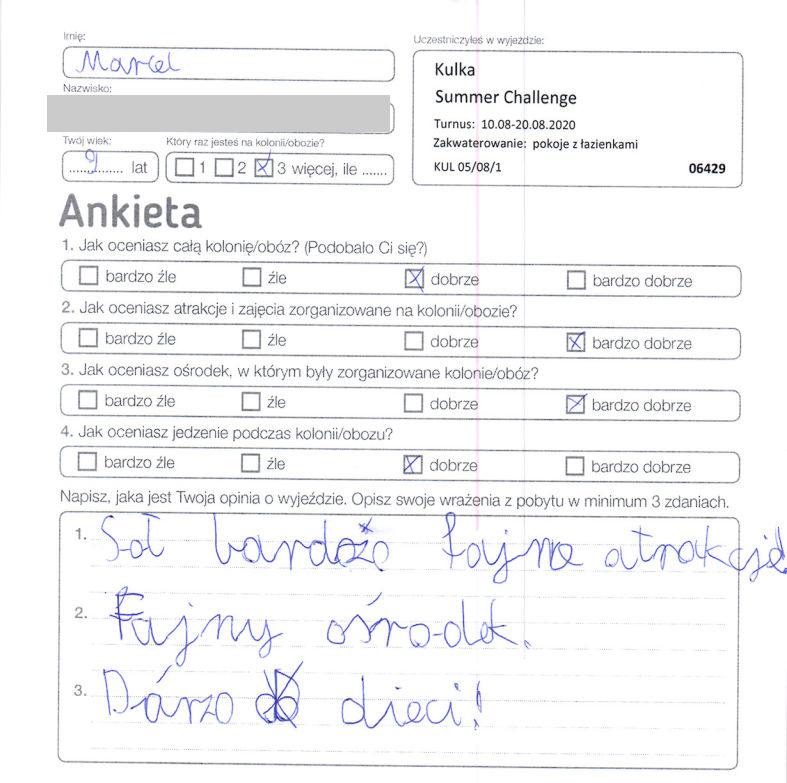 Imię:
Uczestniczyłeś w wyjeździe:
Marcel
Kulka
Nazwisko:
Summer Challenge
Turnus: 10.08-20.08.2020
Twój wiek:
Który raz jesteś na kolonii/obozie?
Zakwaterowanie: pokoje z łazienkami
9 lat
1 2 3 więcej, ile .......
KUL 05/08/1
06429
Ankieta
1. Jak oceniasz całą kolonię/obóz? (Podobało Ci się?)
bardzo źle źle dobrze bardzo dobrze
2. Jak oceniasz atrakcje i zajęcia zorganizowane na kolonii/obozie?
bardzo źle źle dobrze bardzo dobrze
3. Jak oceniasz ośrodek, w którym były zorganizowane kolonie/obóz?
bardzo źle źle dobrze bardzo dobrze
4. Jak oceniasz jedzenie podczas kolonii/obozu?
bardzo źle źle dobrze bardzo dobrze
Napisz, jaka jest Twoja opinia o wyjeździe. Opisz swoje wrażenia z pobytu w minimum 3 zdaniach.
1. fajne atrakcje
2. Fajny
3. dieci!